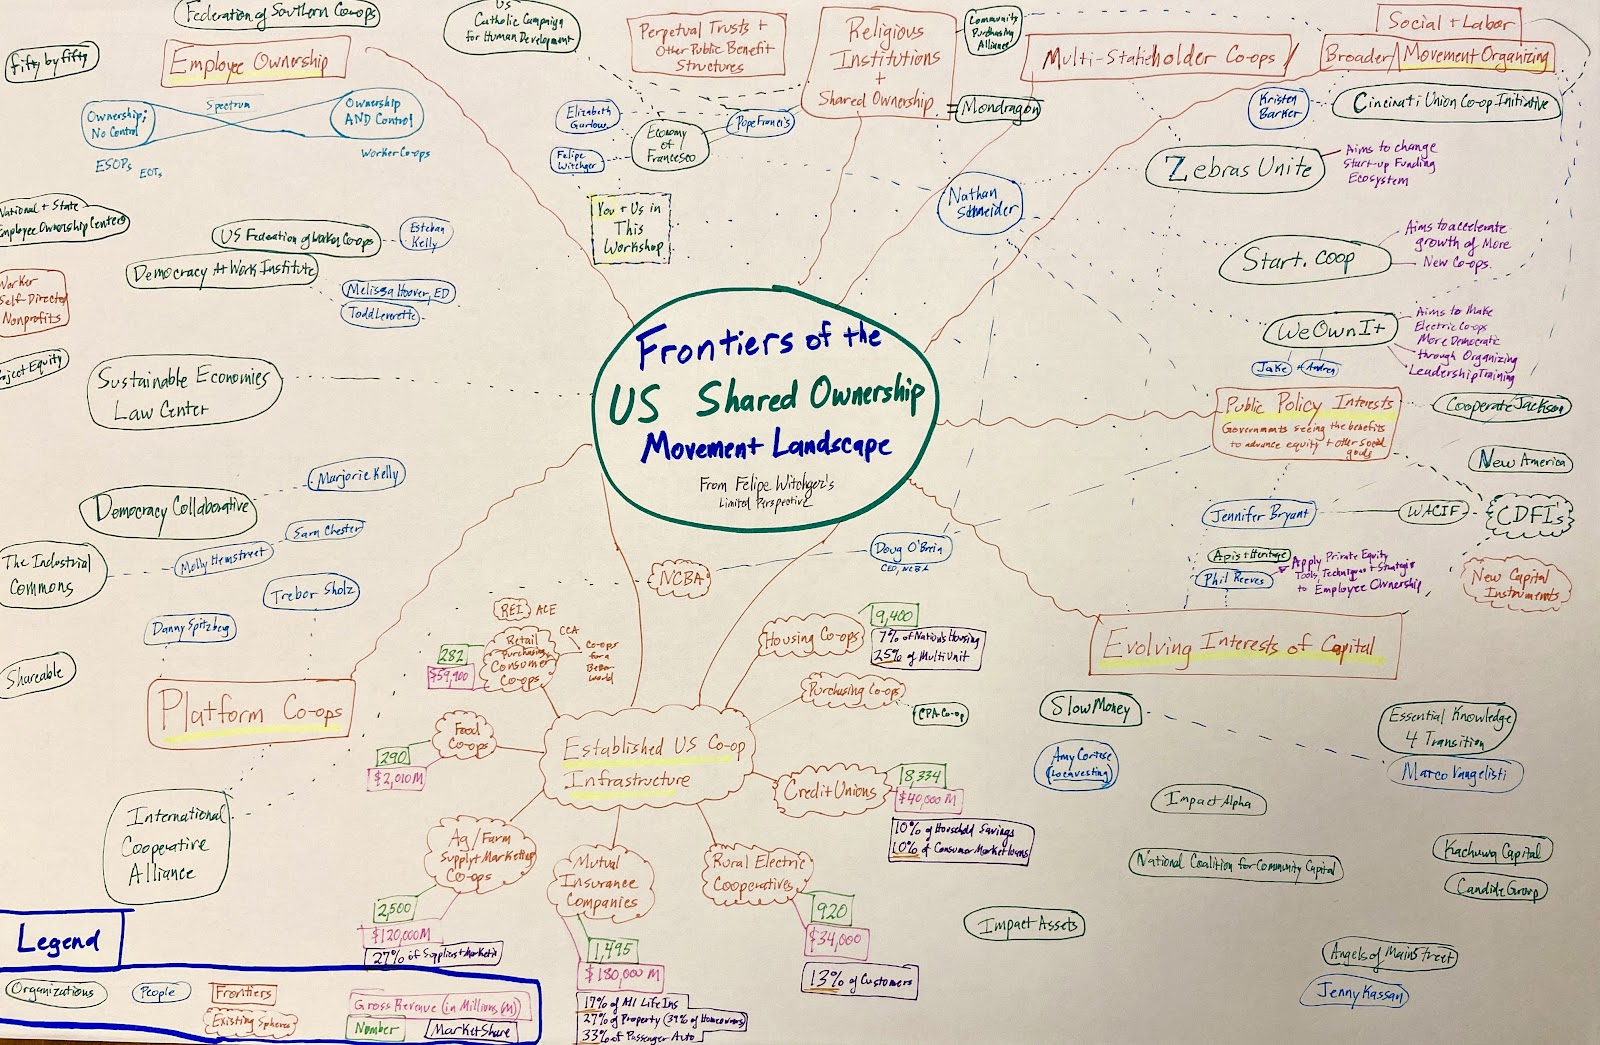 Federation of Southern Co-ops
Fifty by fifty
Employee Ownership
Ownership;
No Control
Spectrum
Ownership
AND Control
ESOPs
EOTs
Worker Co-ops
National + State
Employee Ownership Centers
US Federation of Worker Co-ops
Esteban
Kelly
Democracy At Work Institute
Melissa Hoover, ED
Todd Leverette
Worker
Self-Directed
Nonprofits
Project Equity
Sustainable Economies
Law Center
Marjorie Kelly
Democracy Collaborative
Sara Chester
The Industrial
Commons
Molly Hemstreet
Trebor Sholz
Danny Spitzberg
Shareable
Platform Co-ops
International
Cooperative
Alliance
US
Catholic Campaign
for Human Development
Perpetual Trusts +
Other Public Benefit
Structures
Religious
Institutions
+
Shared Ownership
Community
Purchasing
Alliance
Mondragon
Elizabeth
Garlow
Felipe
Witchger
Economy
of
Francesco
Pope Francis
You + Us in
This
Workshop
Nathan
Schneider
Multi-Stakeholder Co-ops
Social + Labor
Broader/Movement Organizing
Kristen
Barker
Cincinati Union Co-op Initiative
Zebras Unite
Aims to change
Start-up Funding
Ecosystem
Start.coop
Aims to accelerate
growth of More
New Co-ops.
WeOwnIt
Jake + Andrea
Aims to Make
Electric Co-ops
More Democratic
through Organizing
+ Leadership Training
Frontiers of the
US Shared Ownership
Movement Landscape
From Felipe Witchger's
Limited Perspective
Public Policy Interests
Governments seeing the benefits
to advance equity + other social
goals
Cooperate Jackson
New America
Jennifer Bryant
WACIF
CDFI's
Apis + Heritage
Phil Reeves
Apply Private Equity
Tools, Techniques + Strategies
to Employee Ownership
New Capital
Instruments
Evolving Interests of Capital
Doug O'Brein
CEO, NCBA
NCBA
REI
ACE
Retail
Purchasing
Consumer
Co-ops
CCA
Co-ops
for a
Better
World
282
$59,900
Food
Co-ops
290
$2,010M
Housing Co-ops
9,400
7% of Nation's Housing
25% of Multiunit
Purchasing Co-ops
CPA Co-op
Established US Co-op
Infrastructure
Credit Unions
8334
$40,000 M
10% of Household Savings
10% of Consumer Market loans
Ag/Farm
Supply + Marketing
Co-ops
2,500
$120,000M
27% of Suppliers + Market's
Mutual
Insurance
Companies
1,495
$180,000 M
17% of All Life Ins
27% of Property (39% of Homeowners)
33% of Passenger Auto
Rural Electric
Cooperatives
920
$34,000
13% of Customers
Slow Money
Amy Cortese
(Locavesting)
Essential Knowledge
4 Transition
Marco Vangelisti
Impact Alpha
National Coalition for Community Capital
Kachuwa Capital
Candide Group
Impact Assets
Angels of Main Street
Jenny Kassan
Legend
Organizations
People
Frontiers
Existing Spheres
Gross Revenue (in Millions, (M))
Number
Market Share